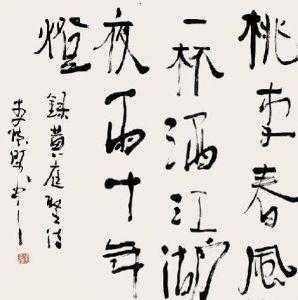 桃李春風
一杯酒江湖
夜雨十年
燈
錄黃庭堅诗